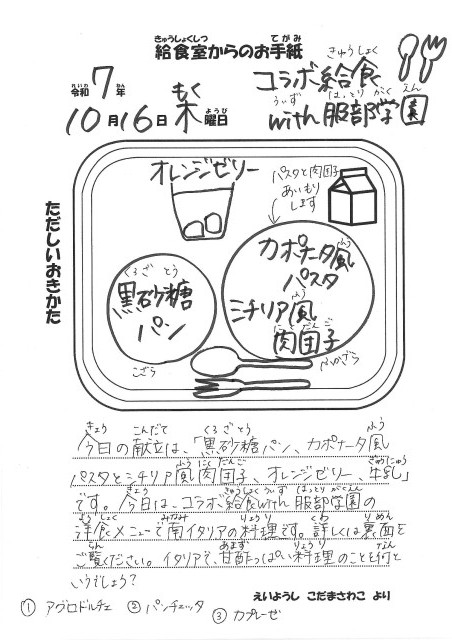 きゅうしょくしつ てがみ
給食室からのお手紙
れいわ ねん
令和7年
もく
10月16日 木曜日
ようび
きゅうしょく
コラボ給食
うぃず はっとり がくえん
with 服部学園
ただしいおきかた
オレンジゼリー
パスタと肉団子
あいもり
します
くろざとう
黒砂糖
パン
こざら
ふう
カポナータ風
パスタ
ふう
ミチリア風
にくだんご
肉団子
ふかざら
きょう こんだて くろざとう ふう
今日の献立は、「黒砂糖パン、カポナータ風
ふうにくだんご ぎゅうにゅう
パスタとミチリア風肉団子、オレンジゼリー、牛乳」
きょう きゅうしょくうぃず はっとりがくえん
です。今日は、コラボ給食with服部学園の
ようしょく みなみ りょうり くわ りめん
洋食メニューで南イタリアの料理です。詳しくは裏面を
らん あまず りょうり なん
ご覧ください。イタリアで、甘酢っぱい料理のことを何と
いうでしょう?
えいようし こだまさわこ より
① アグロドルチェ ② パンチェッタ
③ カプレーゼ